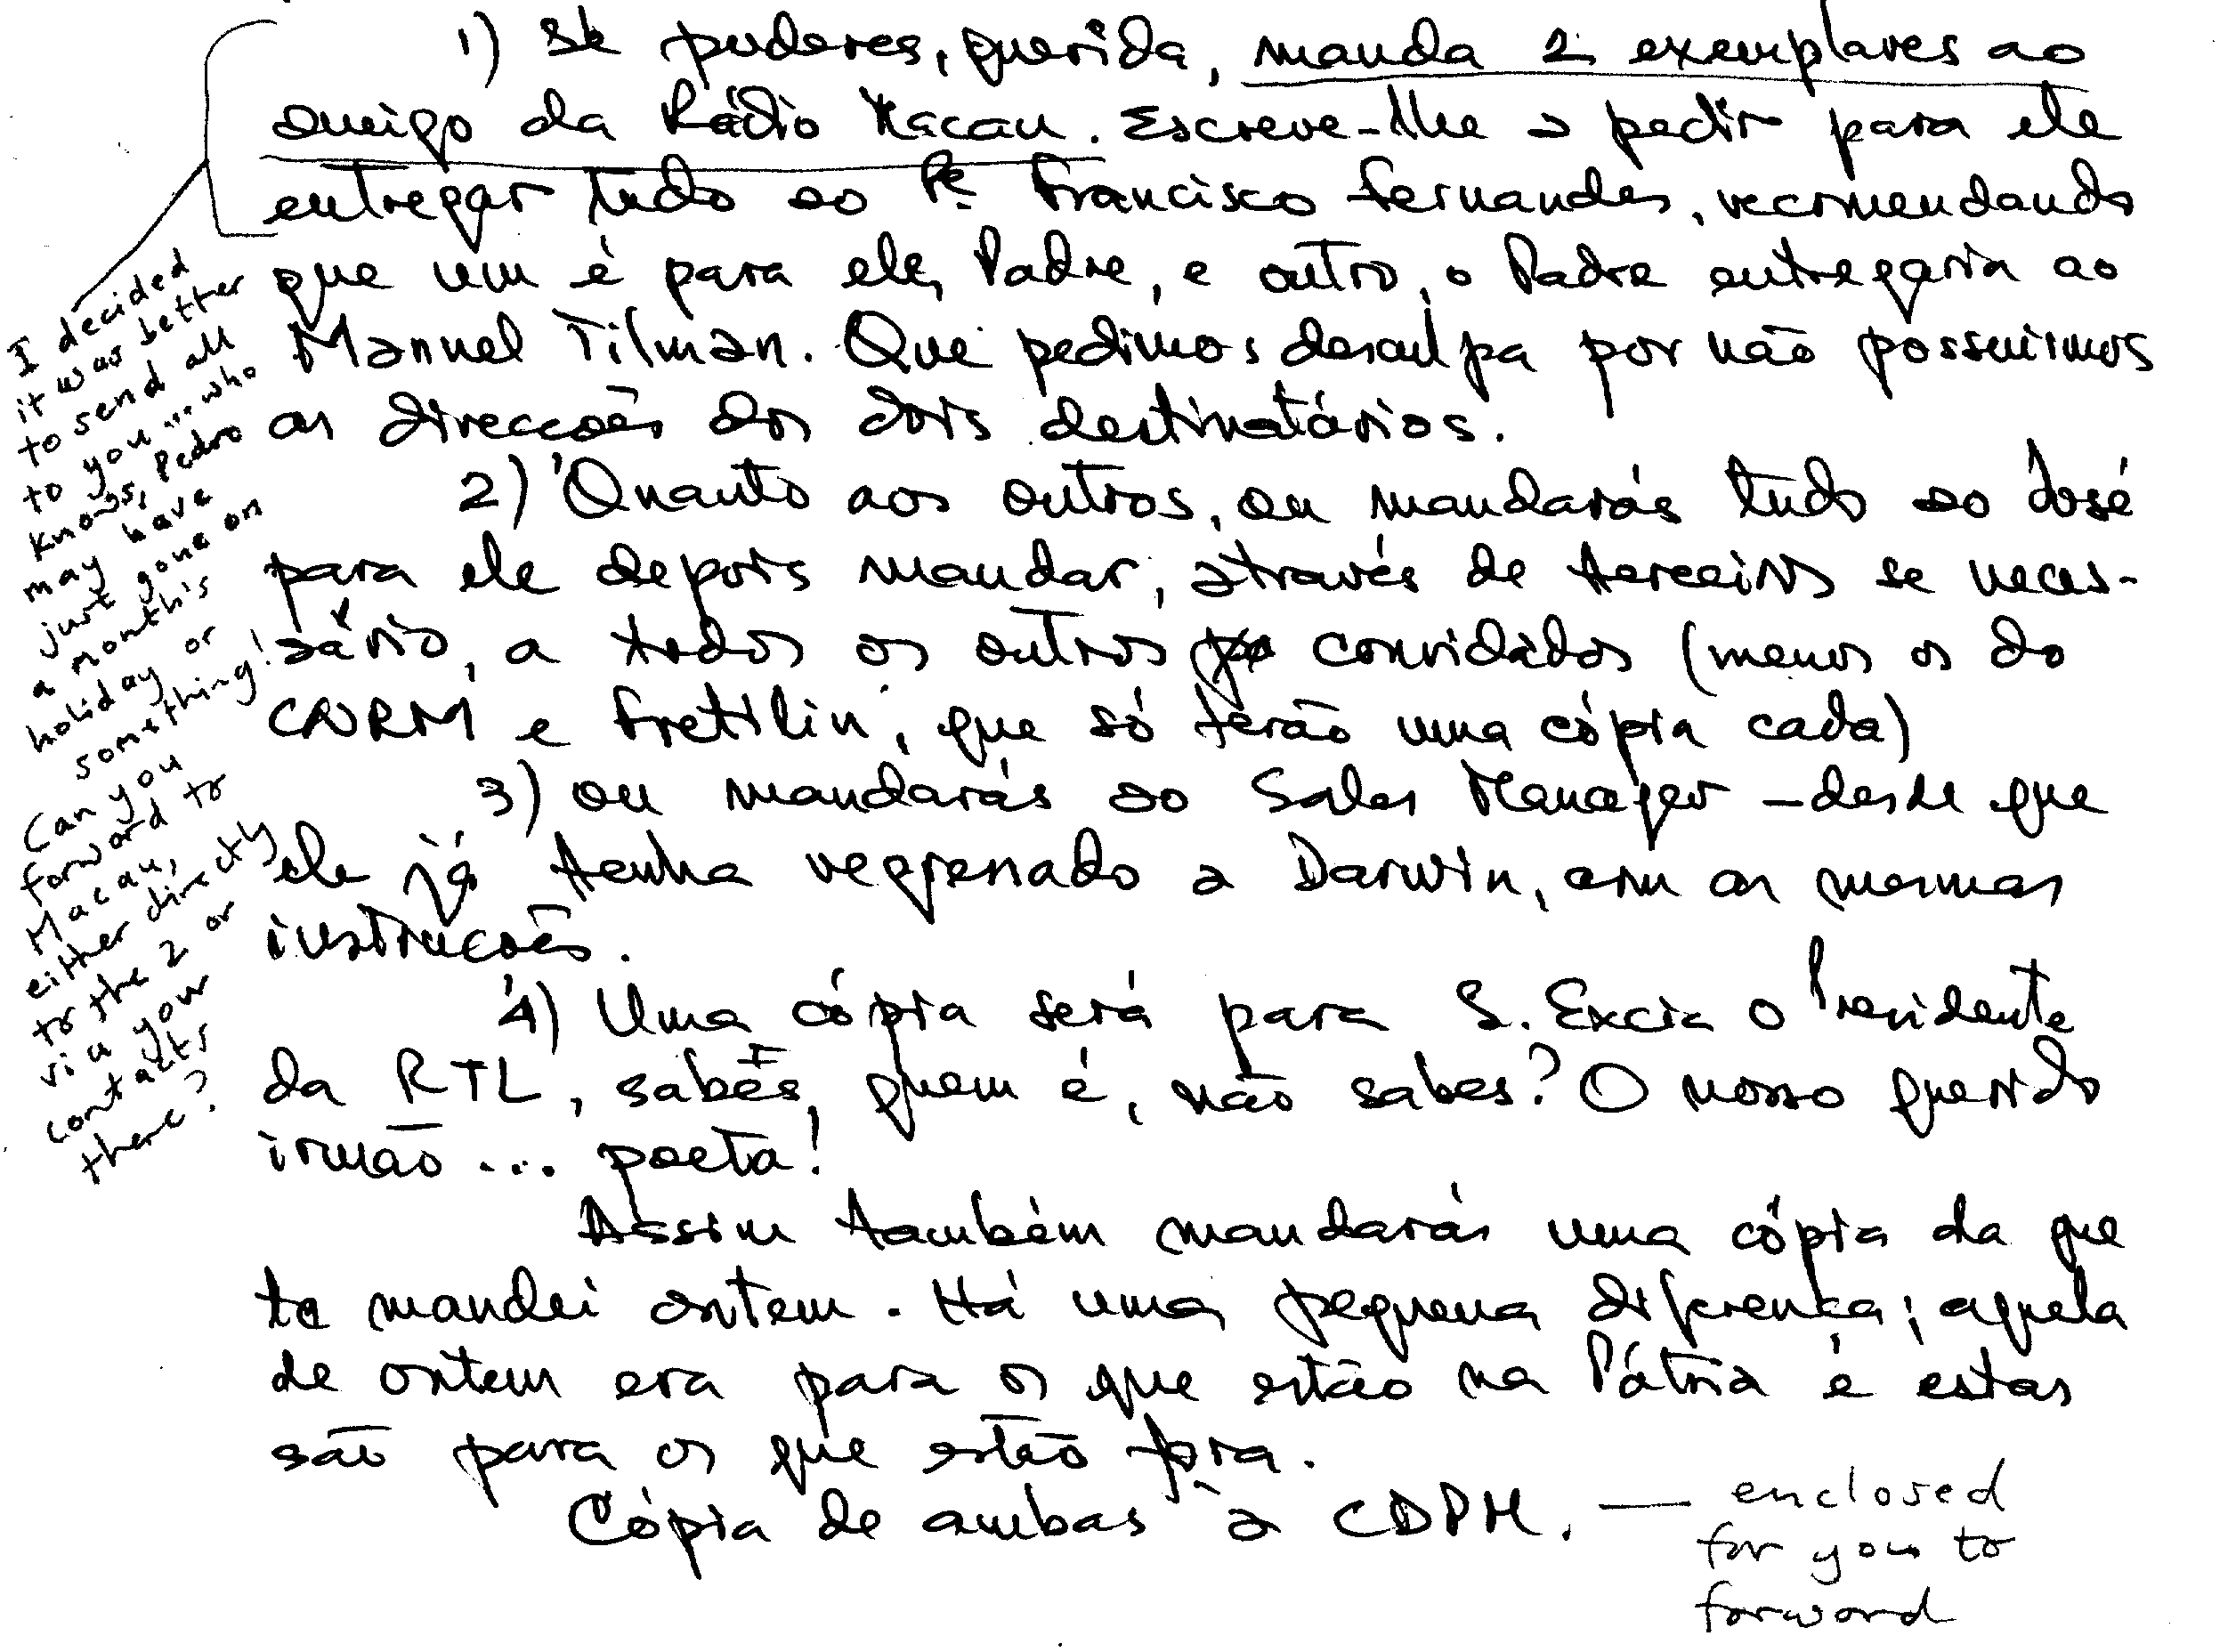 1) Se puderes, querida, manda 2 exemplares ao
amigo da Rádio Macau. Escreve-lhe a pedir para ele
entregar tudo ao Pe. Francisco Fernandes, recomendando
que um é para ele, Padre, e outro, o Padre entregaria ao
Manuel Tilman. Que pedimos desculpa por não possuirmos
as direcções dos dois destinatários.
2) Quanto aos outros, ou mandarás tudo ao José
para ele depois mandar, através de terceiros se neces-
sário, a todos os outros convidados (menos os do
CNRM e Fretilin, que só terão uma cópia cada)
3) ou mandarás ao Sales Manager - desde que
ele já tenha regressado a Darwin, com as mesmas
instruções.
4) Uma cópia será para S. Excia o Presidente
da RTL, sabes, quem é, não sabes? O nosso querido
irmão ... poeta!
Assim também mandarás uma cópia da que
te mandei ontem. Há uma pequena diferença; aquela
de ontem era para os que estão na Pátria e estas
são para os que estão fora.
Cópia de ambas à CDPM. — enclosed
for you to
forward
I decided
it was better
to send all
to you ... who
knows, Pedro
may have
just gone on
a month's
holiday or
something!
Can you
forward to
Macau,
either directly
to the 2 or
via your
contacts
there?